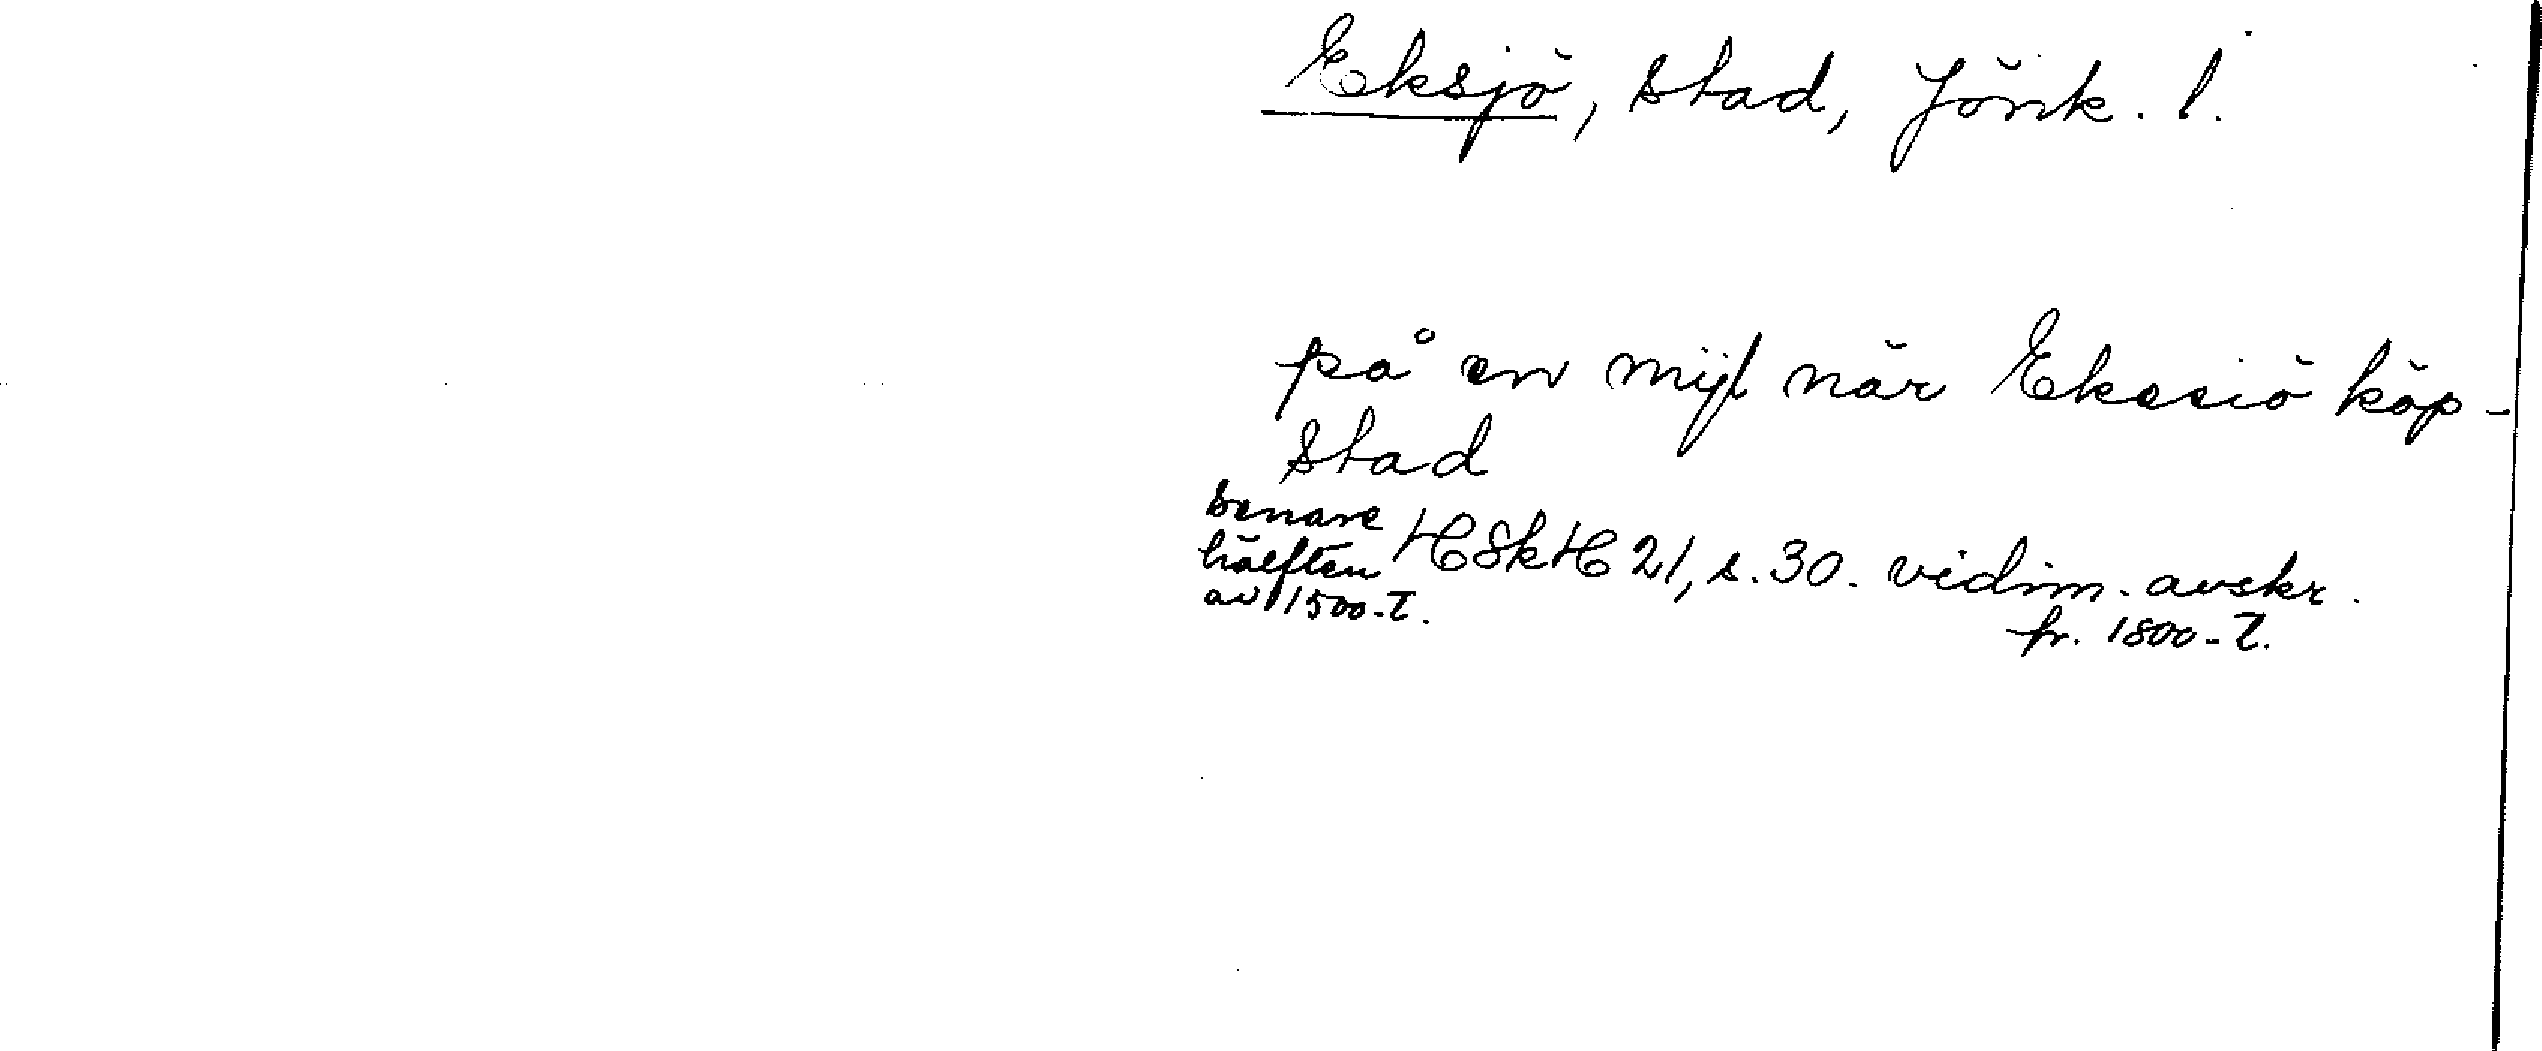 Eksjö, stad, Jönk. l.
på en mijl när Ekesiö köp-
stad
senare
hälften HSkH 21, s. 30. vidim. avskr.
av 1500-t.
fr. 1800-t.